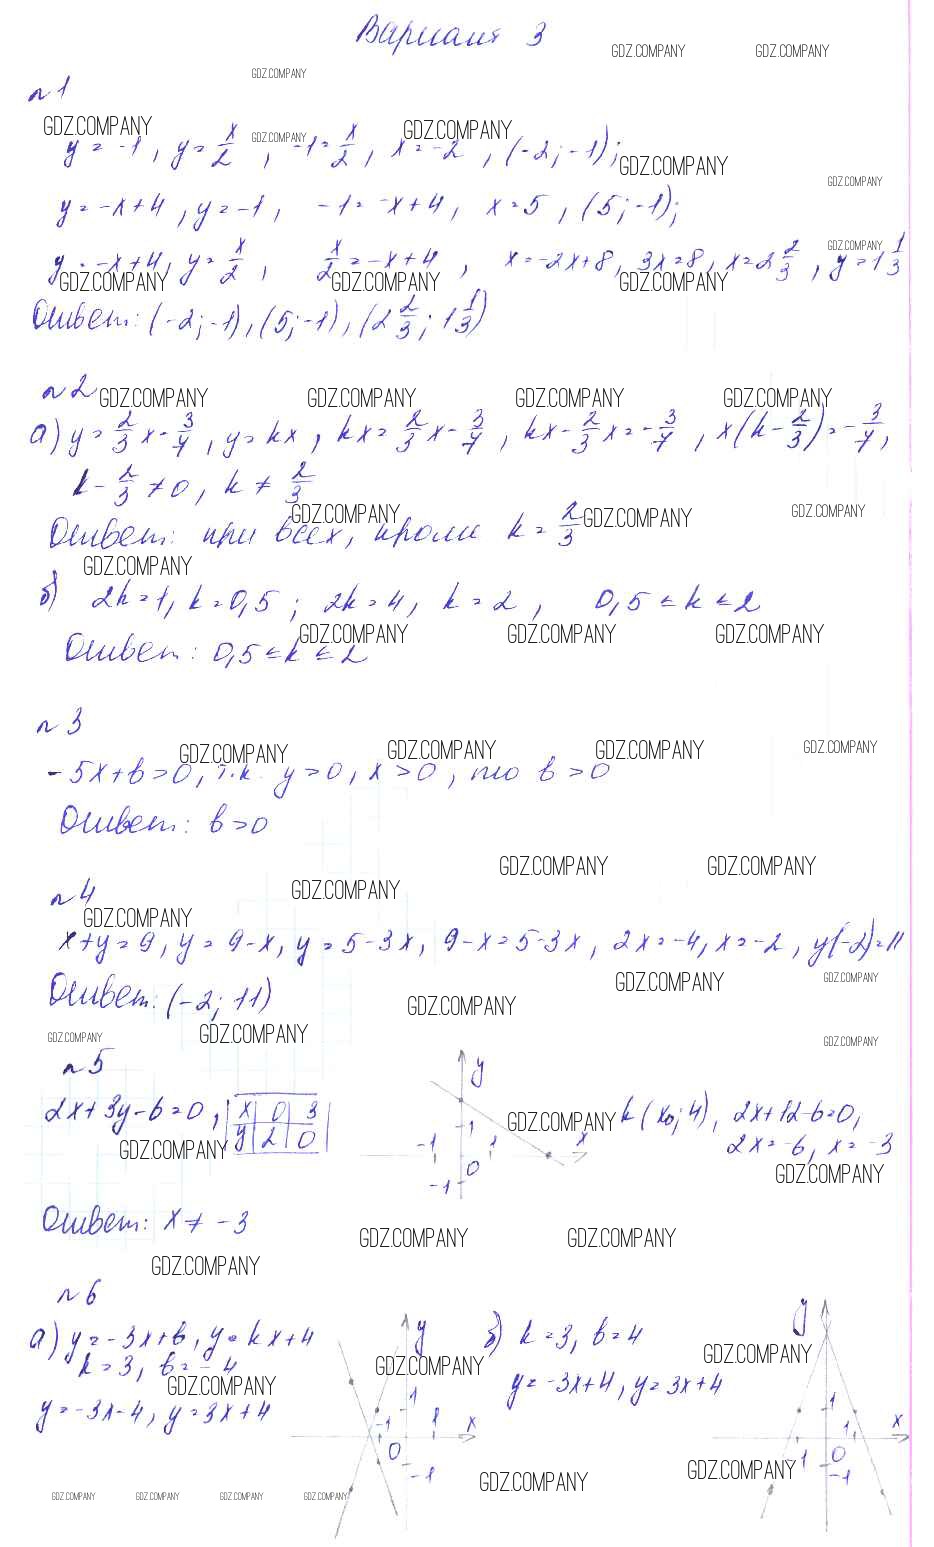 Вариант 3
GDZ.COMPANY GDZ.COMPANY
GDZ.COMPANY
n 1
GDZ.COMPANY GDZ.COMPANY GDZ.COMPANY
y = -1, y = x/2, -1 = x/2, x = -2, (-2; -1);
GDZ.COMPANY GDZ.COMPANY
y = -x+4, y = -1, -1 = -x+4, x = 5, (5; -1);
GDZ.COMPANY
y = -x+4, y = x/2, x/2 = -x+4, x = -2x+8, 3x = 8, x = 2 2/3, y = 1 1/3
GDZ.COMPANY GDZ.COMPANY GDZ.COMPANY
Ответ: (-2; -1), (5; -1), (2 2/3; 1 1/3)
n 2
GDZ.COMPANY GDZ.COMPANY GDZ.COMPANY GDZ.COMPANY
а) y = 2/3 x - 3/7, y = kx, kx = 2/3 x - 3/7, kx - 2/3 x = -3/7, x(k - 2/3) = -3/7,
k - 2/3 ≠ 0, k ≠ 2/3
GDZ.COMPANY GDZ.COMPANY GDZ.COMPANY
Ответ: при всех, кроме k = 2/3
GDZ.COMPANY
б) 2k = 1, k = 0,5; 2k = 4, k = 2, 0,5 ≤ k ≤ 2
GDZ.COMPANY GDZ.COMPANY GDZ.COMPANY
Ответ: 0,5 ≤ k ≤ 2
n 3
GDZ.COMPANY GDZ.COMPANY GDZ.COMPANY GDZ.COMPANY
-5x+b > 0, т.к. y > 0, x > 0, то b > 0
Ответ: b > 0
GDZ.COMPANY GDZ.COMPANY
n 4
GDZ.COMPANY
GDZ.COMPANY
x+y = 9, y = 9-x, y = 5-3x, 9-x = 5-3x, 2x = -4, x = -2, y(-2) = 11
GDZ.COMPANY GDZ.COMPANY
Ответ: (-2; 11)
GDZ.COMPANY
GDZ.COMPANY GDZ.COMPANY GDZ.COMPANY
n 5
y
2x+3y-6=0, x 0 3
y 2 0
k(x₀; 4), 2x+12-6=0,
2x = -6, x = -3
GDZ.COMPANY GDZ.COMPANY
-1 1 1 x
0
-1
GDZ.COMPANY
Ответ: x ≠ -3
GDZ.COMPANY GDZ.COMPANY
GDZ.COMPANY
n 6
а) y = -3x+b, y = kx+4
k = 3, b = -4
y = -3x-4, y = 3x+4
GDZ.COMPANY GDZ.COMPANY
y
1
-1 1 x
0
-1
б) k = 3, b = 4
y = -3x+4, y = 3x+4
GDZ.COMPANY
y
1
1 1 x
0
-1
GDZ.COMPANY GDZ.COMPANY
GDZ.COMPANY GDZ.COMPANY GDZ.COMPANY GDZ.COMPANY